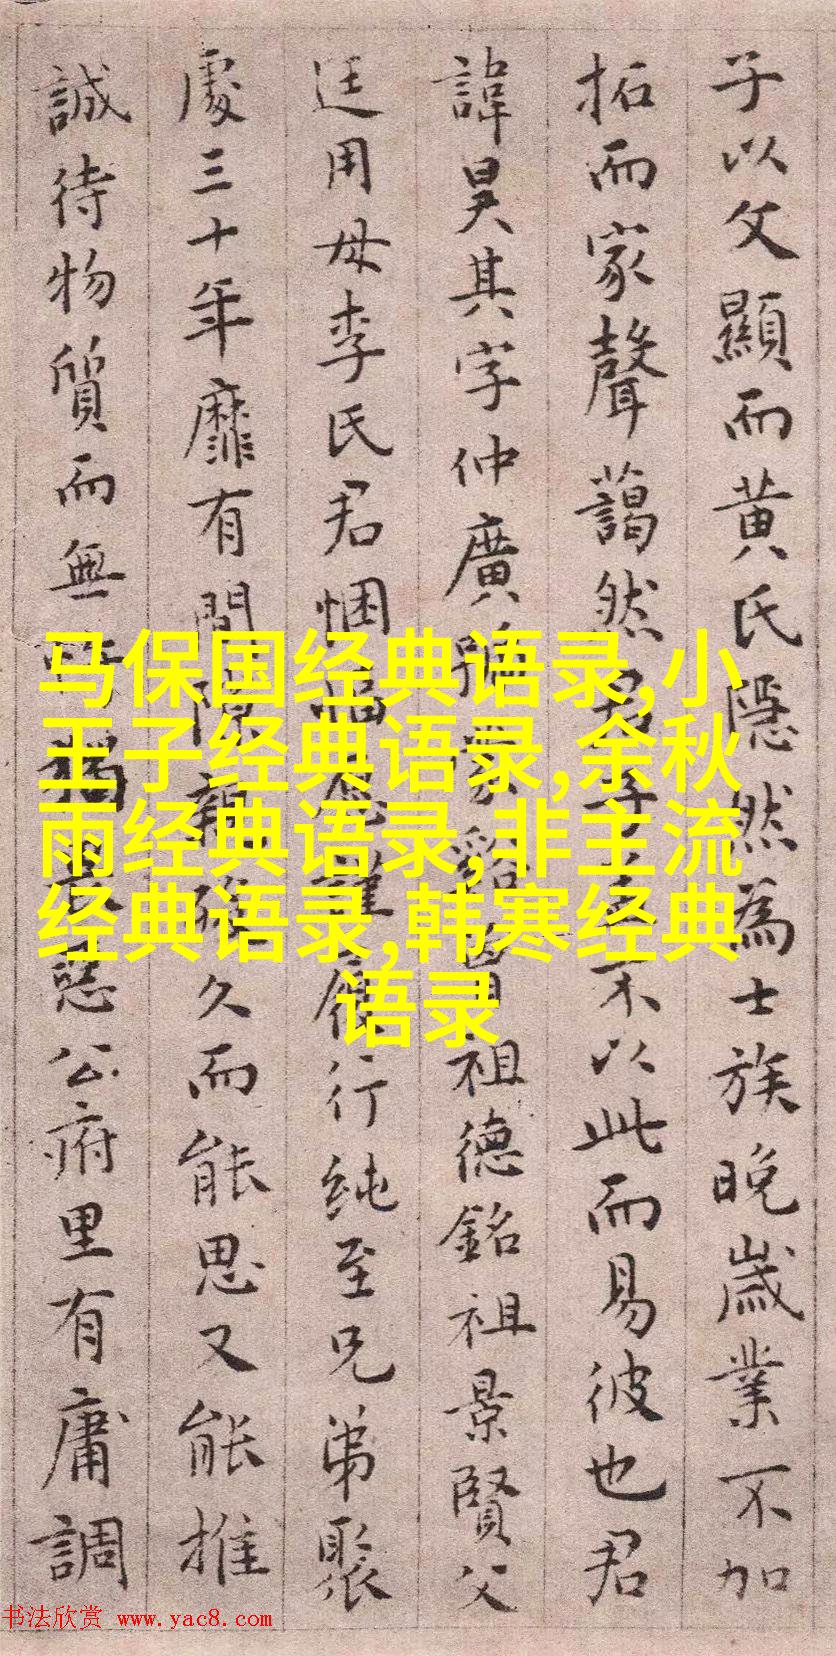 子以父顯而黄氏隱然為士族晚歲業不加
拓而家聲藹然君子不以此而易彼也君
諱昊其字仲廣號蒙谿曾祖德銘祖景賢父
廷用母李氏君悃愊謹履行純至兄弟聚
處三十年靡有間隙親殁久而能思又能推
誠待物質而無公府里有庸調
马保国经典语录,小
王子经典语录,余秋
雨经典语录,非主流
经典语录,韩寒经典
语录
书法欣赏 www.yac8.com